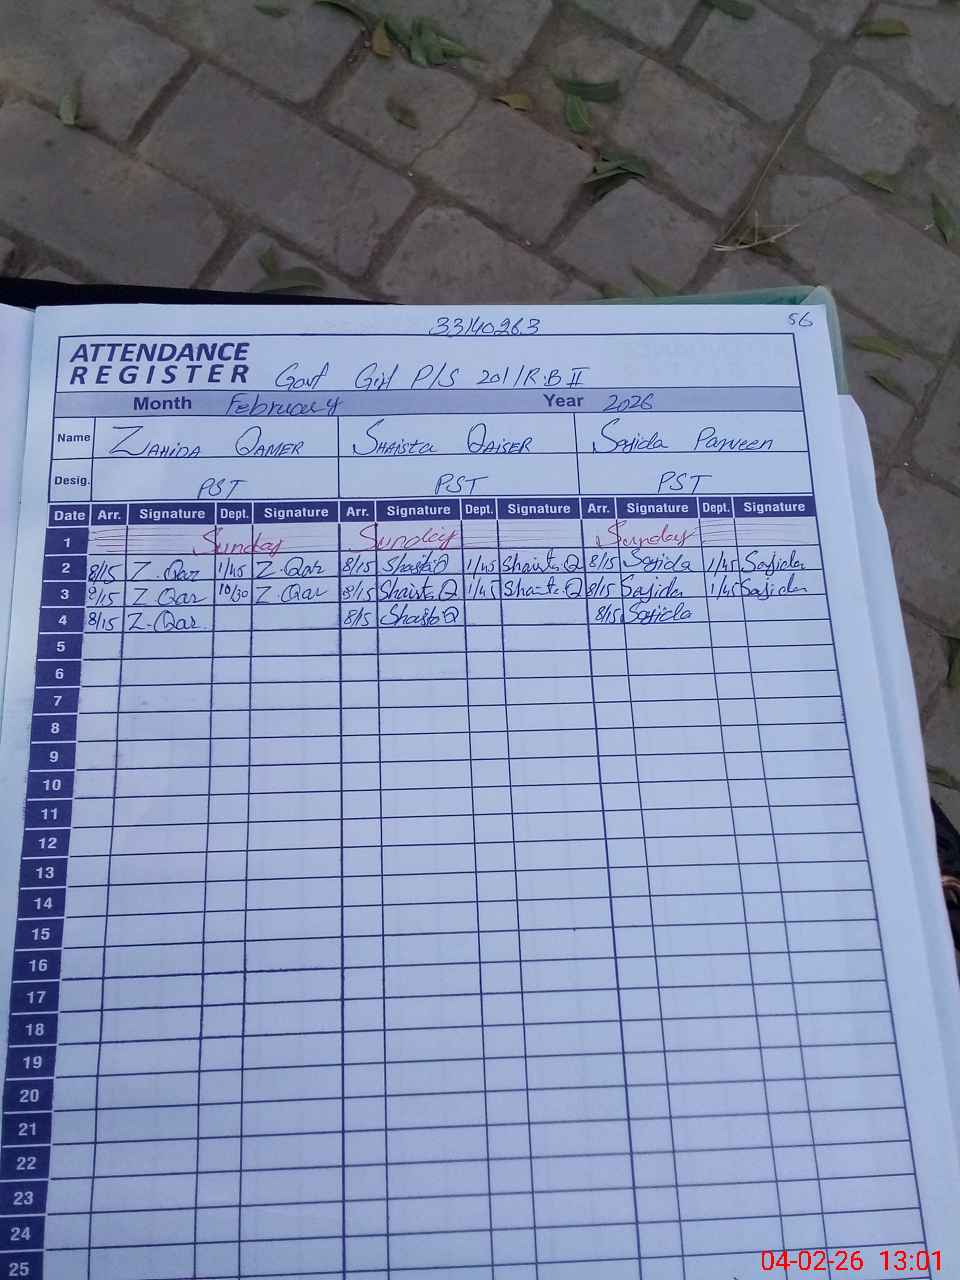 33140263
56
ATTENDANCE
REGISTER Govt Girl P/S 201/R.B II
Month February Year 2026
Name ZAHIDA QAMER SHAISTA QAISER Sajida Parveen
Desig. PST PST PST
Date Arr. Signature Dept. Signature Arr. Signature Dept. Signature Arr. Signature Dept. Signature
1 Sunday Sunday Sunday
2 8/15 Z.Qar 1/45 Z.Qar 8/15 Shaista Q 1/45 Shaista Q 8/15 Sajida 1/45 Sajida
3 8/15 Z Qar 10/30 Z.Qar 8/15 Shaista Q 1/45 Shaista.Q 8/15 Sajida 1/45 Sajida
4 8/15 Z.Qar 8/15 Shaista Q 8/15 Sajida
5
6
7
8
9
10
11
12
13
14
15
16
17
18
19
20
21
22
23
24
25
04-02-26 13:01